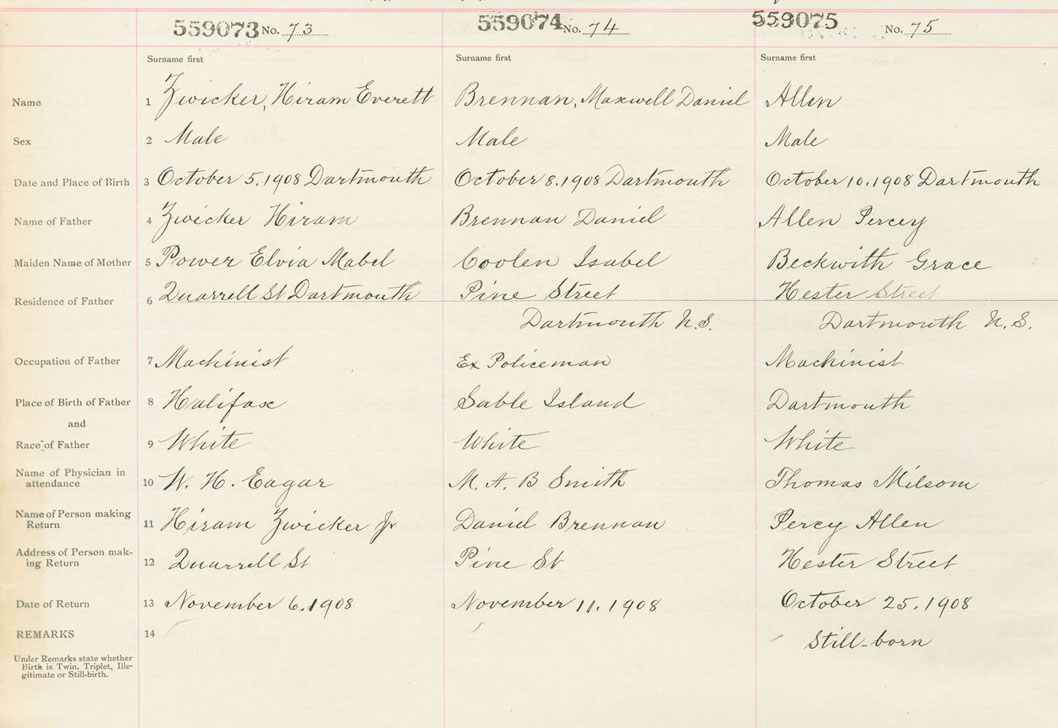 559073 No. 73 559074 No. 74 559075 No. 75
Surname first Surname first Surname first
Name 1 Zwicker, Hiram Everett Brennan, Maxwell Daniel Allen
Sex 2 Male Male Male
Date and Place of Birth 3 October 5, 1908 Dartmouth October 8. 1908 Dartmouth October 10. 1908 Dartmouth
Name of Father 4 Zwicker Hiram Brennan Daniel Allen Percey
Maiden Name of Mother 5 Power Elvia Mabel Coolen Isabel Beckwith Grace
Residence of Father 6 Quarrell St Dartmouth Pine Street Hester Street
Dartmouth N.S. Dartmouth N.S.
Occupation of Father 7 Machinist Ex Policeman Machinist
Place of Birth of Father 8 Halifax Sable Island Dartmouth
and
Race of Father 9 White White White
Name of Physician in
attendance 10 W. H. Eagar M. A. B Smith Thomas Milsom
Name of Person making
Return 11 Hiram Zwicker Jr Daniel Brennan Percy Allen
Address of Person mak-
ing Return 12 Quarrell St Pine St Hester Street
Date of Return 13 November 6. 1908 November 11. 1908 October 25. 1908
REMARKS 14 Still-born
Under Remarks state whether
Birth is Twin, Triplet, Ille-
gitimate or Still-birth.